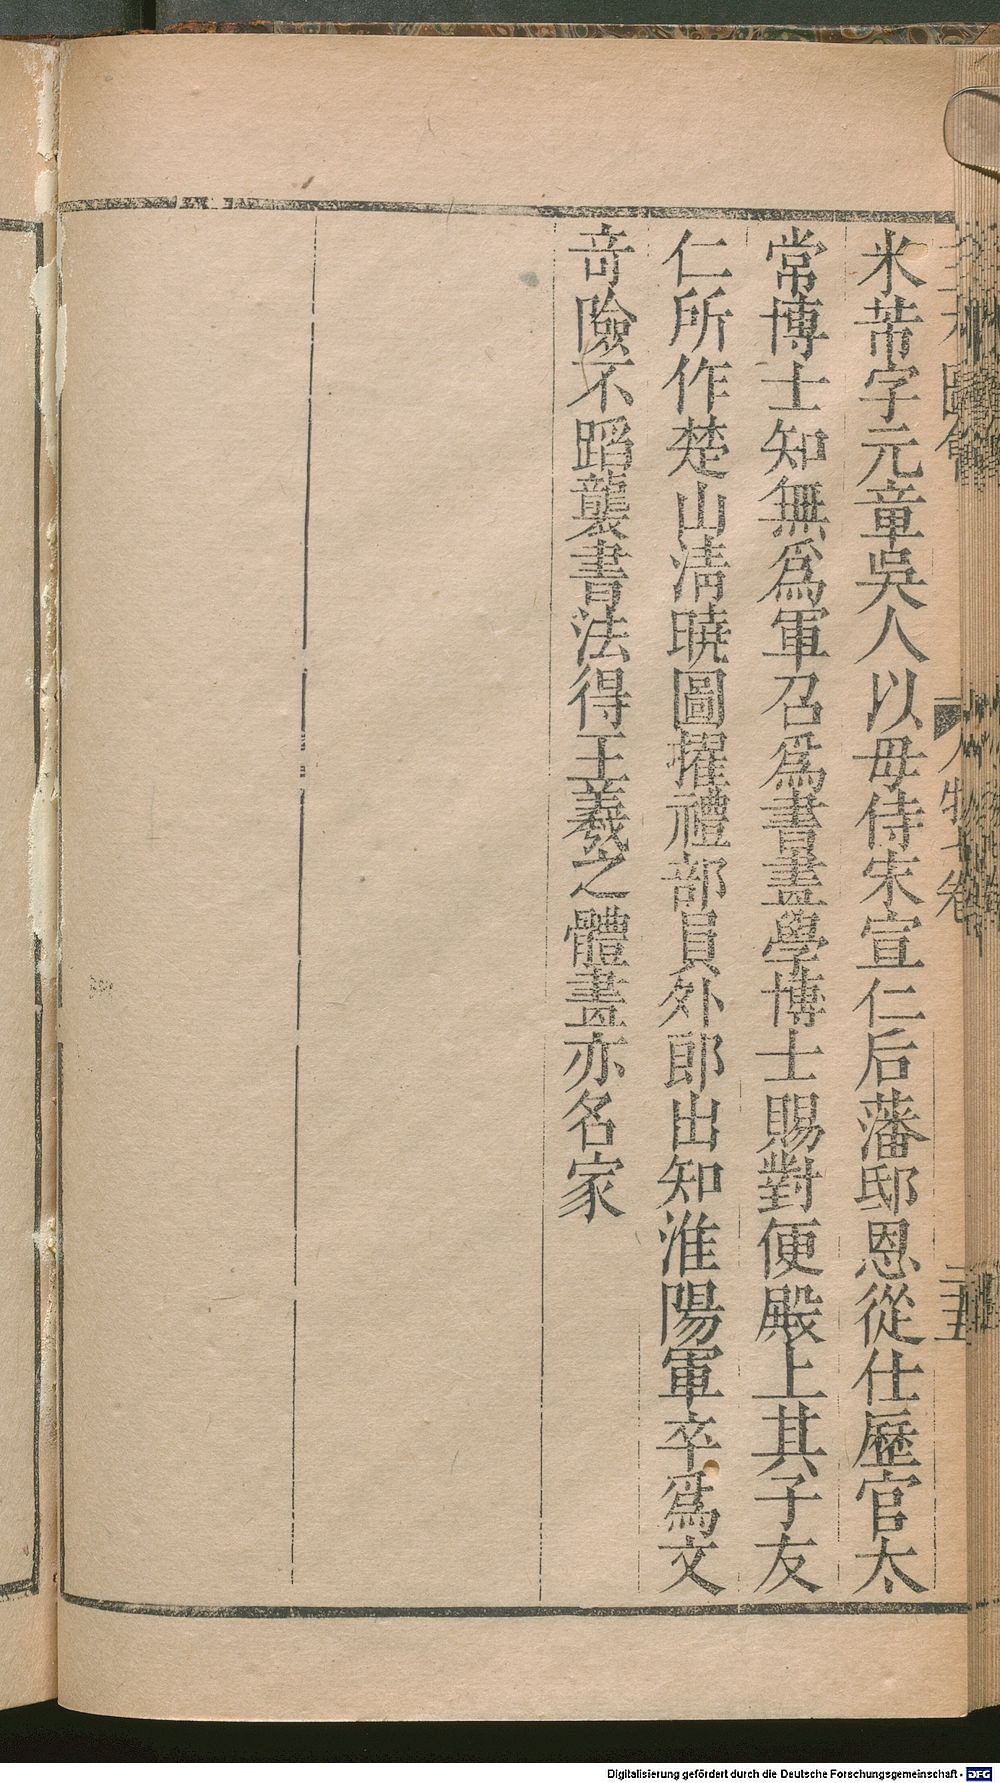 米芾字元章吳人以母侍宋宣仁后藩邸恩從仕歷官太
常博士知無爲軍召爲書畫學博士賜對便殿上其子友
仁所作楚山清曉圖擢禮部員外郎出知淮陽軍卒爲文
竒險不蹈襲書法得王羲之體畫亦名家
圖會
人物七卷
三十五
Digitalisierung gefördert durch die Deutsche Forschungsgemeinschaft - DFG